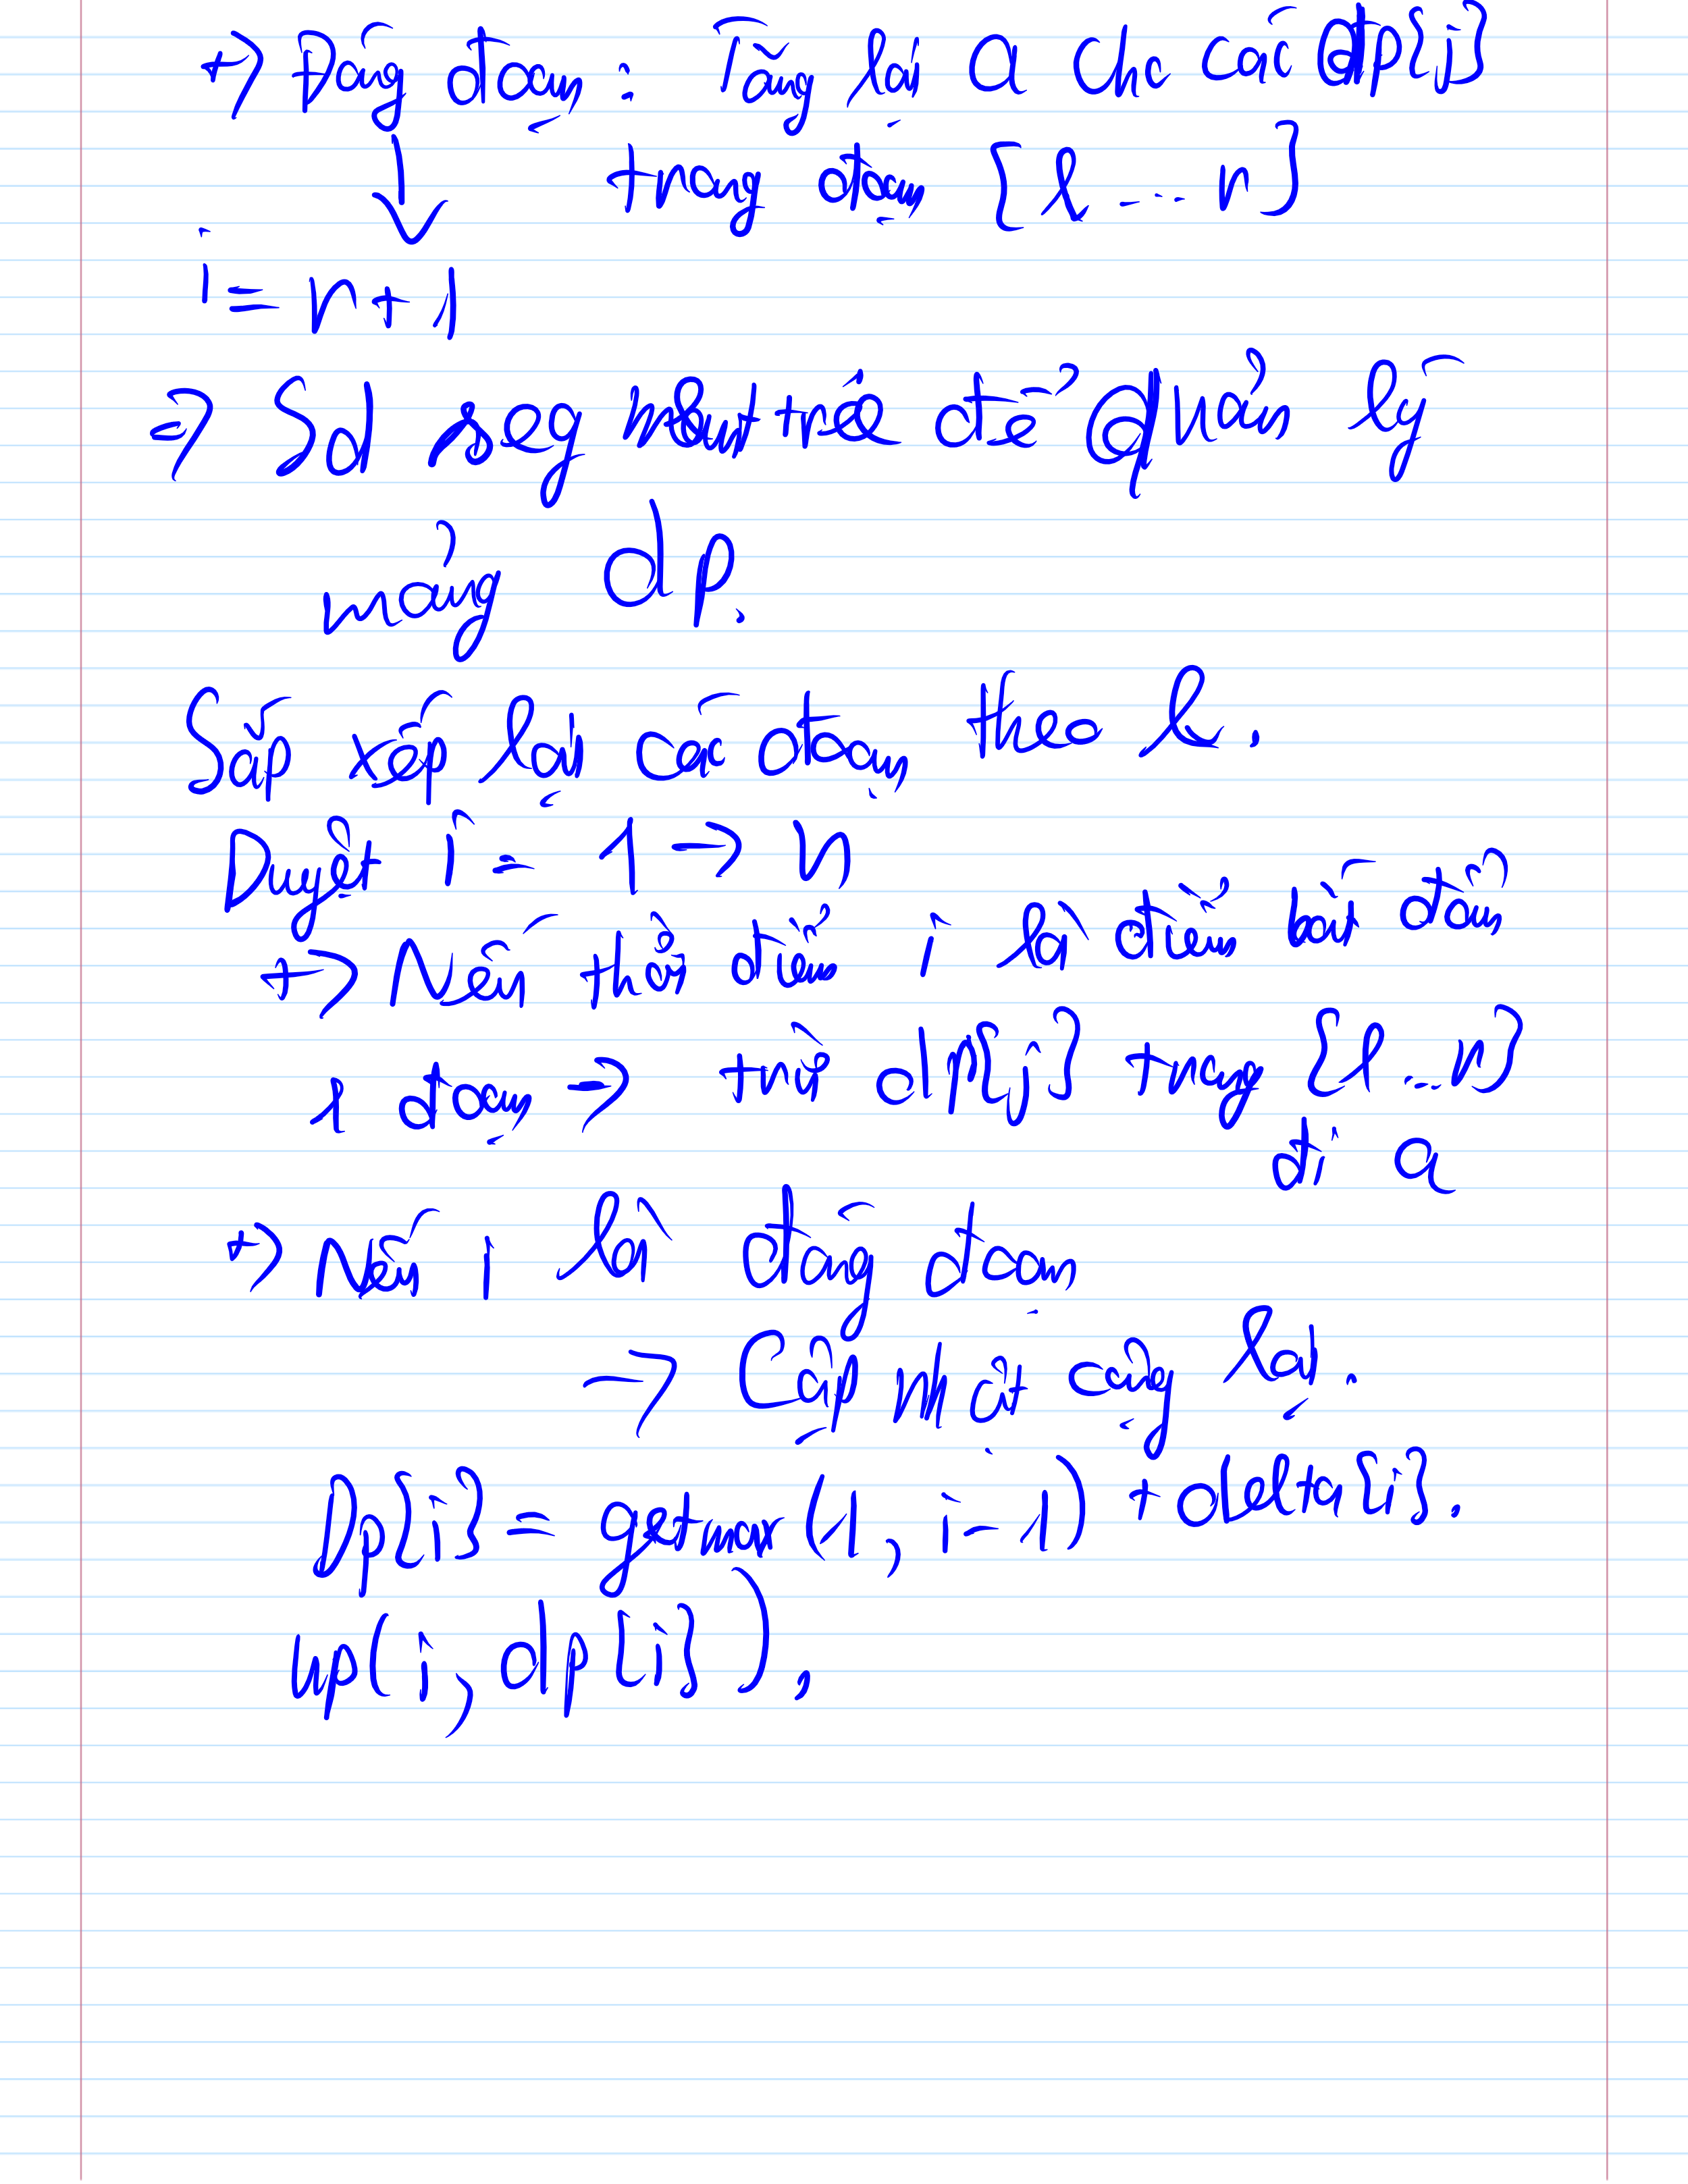 +> Đóng đoạn : Tăng lại a cho các dp[j]
trong đoạn [l ... r]
i = r + 1
=> Sd segment tree để quản lý
mảng dp.
Sắp xếp lại các đoạn theo l.
Duyệt i = 1 -> n
+> Nếu thời điểm i là điểm bắt đầu
1 đoạn -> trừ dp[j] trong [l .. r]
đi a
+> Nếu i là đóng đoạn
-> Cập nhật cộng lại.
Dp[i] = getmax(1, i-1) + delta[i].
up(i, dp[i]).